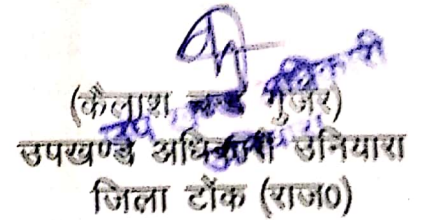 (कैलाश चन्द गुर्जर)
उपखण्ड अधिकारी उनियारा
जिला टोंक (राज0)